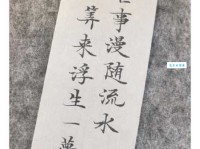 事漫随流水
筭来浮生一